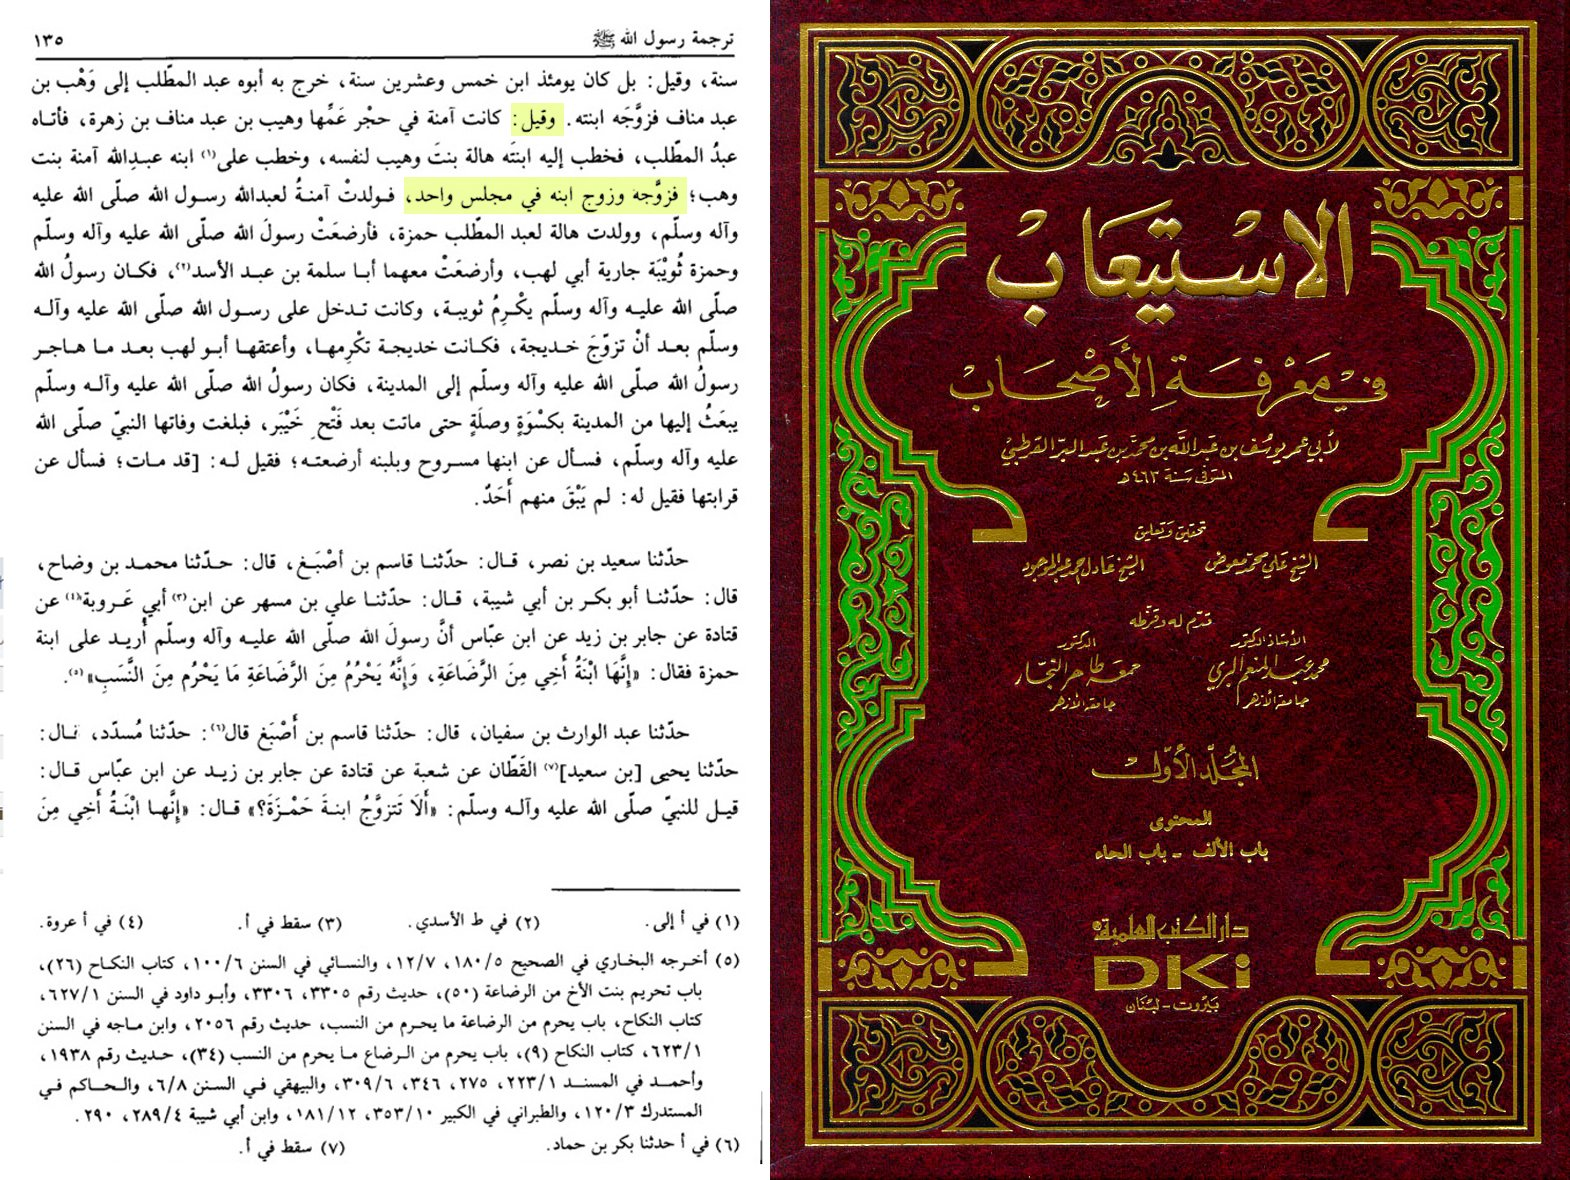 ترجمة رسول الله ﷺ ١٣٥
سنة، وقيل: بل كان يومئذ ابن خمس وعشرين سنة، خرج به أبوه عبد المطّلب إلى وَهْب بن
عبد مناف فزوَّجَه ابنته. وقيل: كانت آمنة في حجْر عَمِّها وهيب بن عبد مناف بن زهرة، فأتاه
عبدُ المطّلب، فخطب إليه ابنتَه هالة بنتَ وهيب لنفسه، وخطب على(١) ابنه عبدِالله آمنة بنت
وهب؛ فزوَّجه وزوج ابنه في مجلس واحد، فولدتْ آمنةُ لعبدالله رسول الله صلّى الله عليه
وآله وسلّم، وولدت هالة لعبد المطّلب حمزة، فأرضعَتْ رسولَ الله صلّى الله عليه وآله وسلّم
وحمزة ثُويْبَة جارية أبي لهب، وأرضعَتْ معهما أبا سلمة بن عبد الأسد(٢)، فكان رسولُ الله
صلّى الله عليه وآله وسلّم يكْرِمُ ثويبة، وكانت تدخل على رسول الله صلّى الله عليه وآله
وسلّم بعد أنْ تزوّجَ خديجة، فكانت خديجة تكْرِمها، وأعتقها أبو لهب بعد ما هاجر
رسولُ الله صلّى الله عليه وآله وسلّم إلى المدينة، فكان رسولُ الله صلّى الله عليه وآله وسلّم
يبعَثُ إليها من المدينة بكسْوَةٍ وصلَةٍ حتى ماتت بعد فَتْح خَيْبَر، فبلغت وفاتها النبيّ صلّى الله
عليه وآله وسلّم، فسأل عن ابنها مسروح وبلبنه أرضعته؛ فقيل له: [قد مات؛ فسأل عن
قرابتها فقيل له: لم يَبْقَ منهم أَحَدٌ.
حدّثنا سعيد بن نصر، قال: حدّثنا قاسم بن أصْبَغ، قال: حدّثنا محمد بن وضاح،
قال: حدّثنا أبو بكر بن أبي شيبة، قال: حدّثنا علي بن مسهر عن ابن(٣) أبي عَروبة(٤) عن
قتادة عن جابر بن زيد عن ابن عبّاس أنَّ رسولَ الله صلّى الله عليه وآله وسلّم أُريد على ابنة
حمزة فقال: «إِنَّهَا ابْنَةُ أَخِي مِنَ الرَّضَاعَةِ، وَإِنَّهُ يَحْرُمُ مِنَ الرَّضَاعَةِ مَا يَحْرُم مِنَ النَّسَبِ»(٥).
حدّثنا عبد الوارث بن سفيان، قال: حدّثنا قاسم بن أَصْبَغ قال(٦): حدّثنا مُسدّد، قال:
حدّثنا يحيى [بن سعيد](٧) القَطّان عن شعبة عن قتادة عن جابر بن زيد عن ابن عبّاس قال:
قيل للنبيّ صلّى الله عليه وآله وسلّم: «أَلَا تَتزوَّجُ ابنةَ حَمْزَةَ؟» قال: «إِنَّها ابْنَةُ أَخِي مِنَ
(١) في أ إلى. (٢) في ط الأسدي. (٣) سقط في أ. (٤) في أ عروة.
(٥) أخرجه البخاري في الصحيح ١٨٠/٥، ١٢/٧، والنسائي في السنن ١٠٠/٦، كتاب النكاح (٢٦)،
باب تحريم بنت الأخ من الرضاعة (٥٠)، حديث رقم ٣٣٠٥، ٣٣٠٦، وأبو داود في السنن ٦٢٧/١،
كتاب النكاح، باب يحرم من الرضاعة ما يحرم من النسب، حديث رقم ٢٠٥٦، وابن ماجه في السنن
٦٢٣/١، كتاب النكاح (٩)، باب يحرم من الرضاع ما يحرم من النسب (٣٤)، حديث رقم ١٩٣٨،
وأحمد في المسند ٢٢٣/١، ٢٧٥، ٣٤٦، ٣٠٩/٦، والبيهقي في السنن ٦/٨، والحاكم في
المستدرك ١٢٠/٣، والطبراني في الكبير ٣٥٣/١٠، ١٨١/١٢، وابن أبي شيبة ٢٨٩/٤، ٢٩٠.
(٦) في أ حدثنا بكر بن حماد. (٧) سقط في أ.
الاسْتيعَاب
في مَعْرفَةِ الأَصْحَاب
لأبي عمر يوسُف بن عَبدالله بن محمّد بن عَبدالبرّ القرطبيّ
المتوفى سَنة ٤٦٣هـ
تحقيق وَتعليق
الشيخ علي محمّد معوض الشيخ عَادل أحمد عبدالموجود
قدّم له وقرّظه
الأستاذ الدكتور الدكتور
محمد عبدالمنعم البري جمعَة طاهر النجّار
جامعة الأزهر جامعة الأزهر
المجَلّد الأوّل
المحتوى
باب الألف - باب الحاء
دار الكتب العلمية
DKi
بَيروت - لبنان